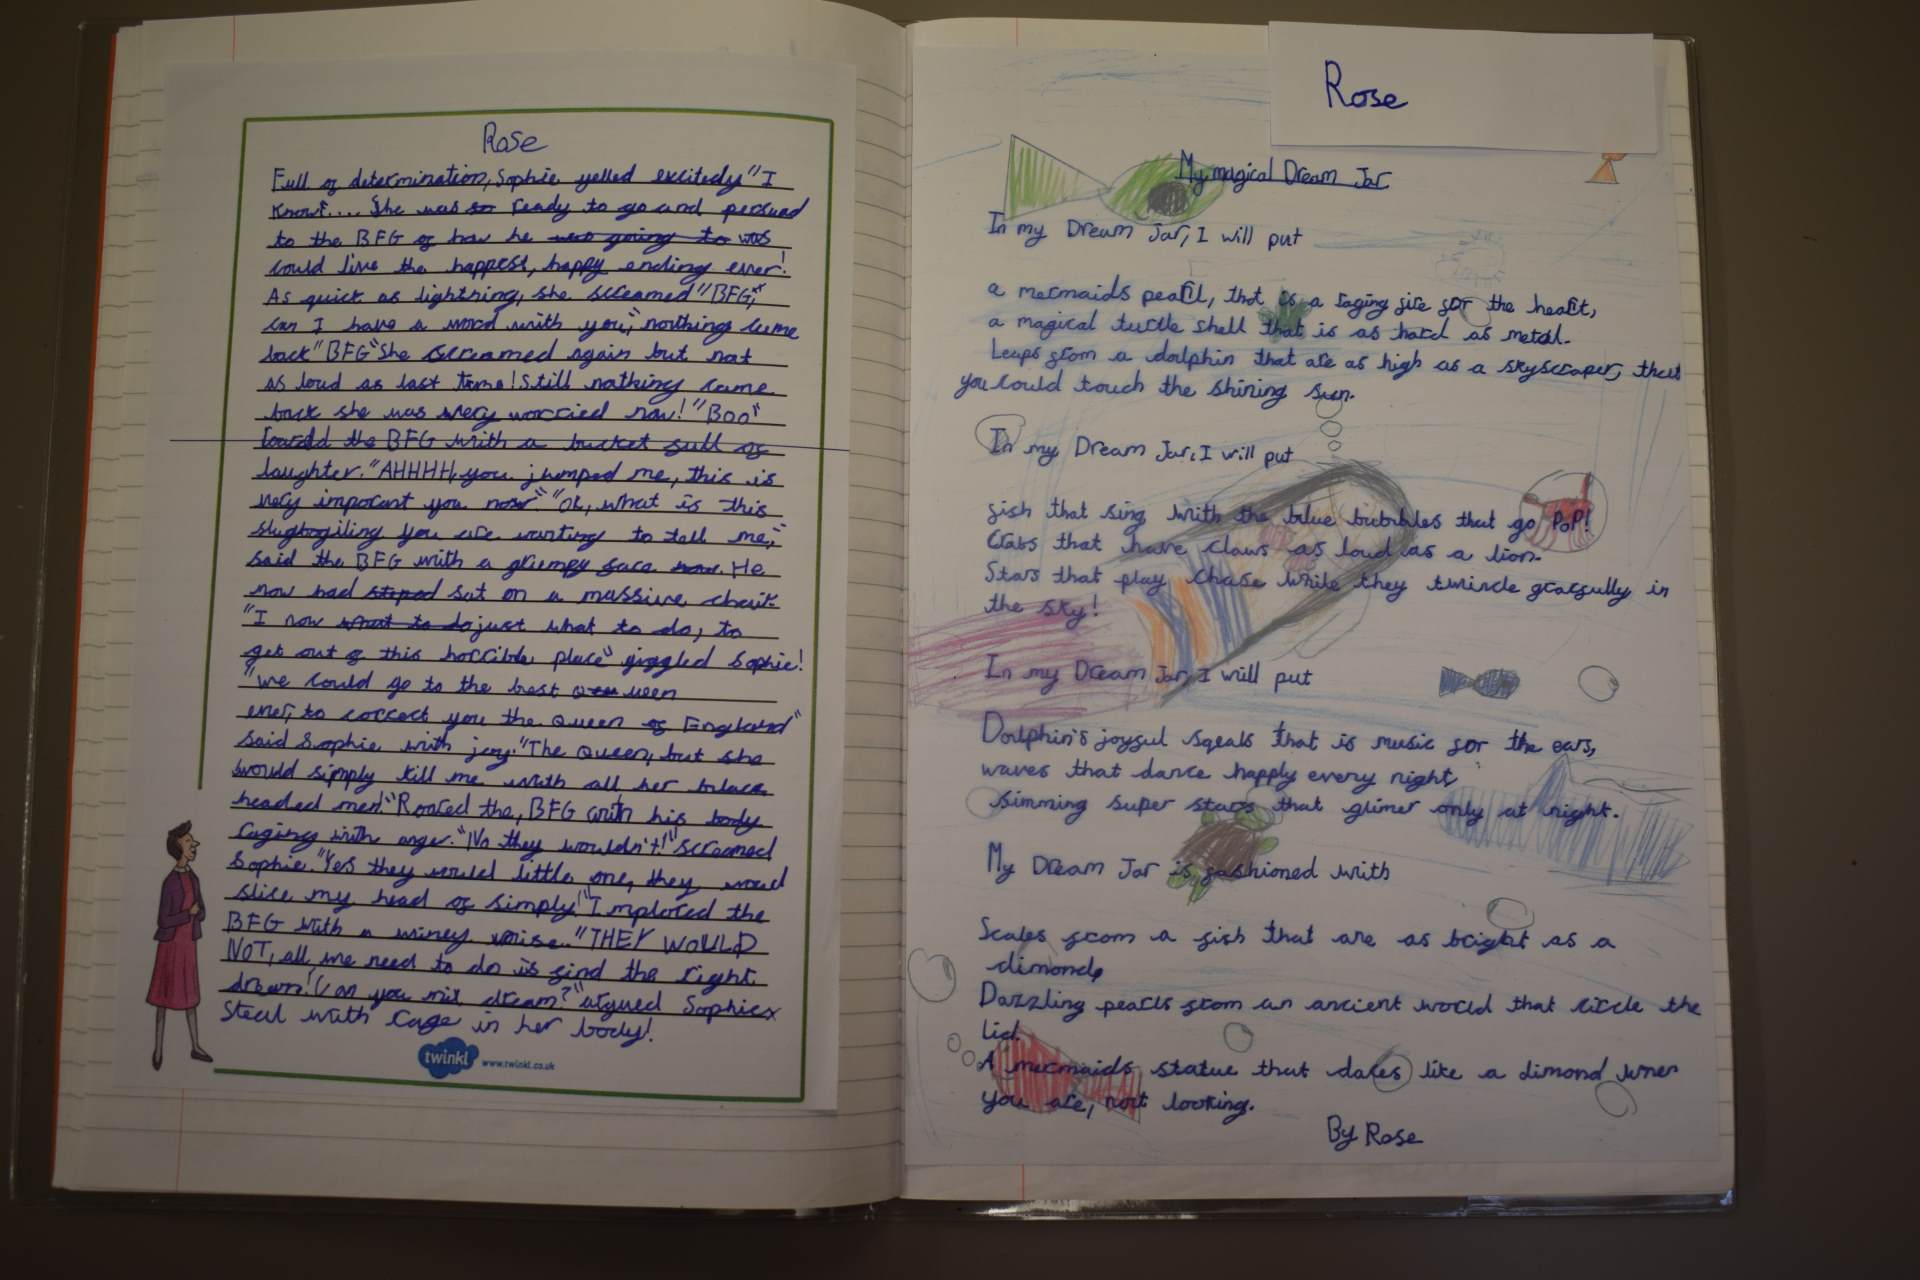 Rose
Full of determination, Sophie yelled excitedy "I
know".... She was so ready to go and persuad
to the BFG of how he was going to was
could live the happest, happy ending ever!
As quick as lightning, she screamed "BFG,"
can I have a word with you," northing came
back "BFG" she screamed again but not
as loud as last time! Still nothing came
back she was very worried now! "Boo"
the BFG with a bucket full of
laughter. "AHHHH, you jumped me, this is
very imporant you now." "Ok, what is this
you are wanting to tell me,"
said the BFG with a grumpy face now. He
now had steped sat on a massive chair.
"I now what to do just what to do, to
get out of this horrible place" giggled Sophie!
"we could go to the best ueen
ever, to correct you the Queen of England"
said Sophie with joy. "The Queen, but she
would simply kill me with all her black
headed men!" Roared the, BFG with his body
raging with anger. "No they wouldn't!" screamed
Sophie. "Yes they would little one, they woud
slice my head of simply!" Implored the
BFG with a winey voise. "THEY WOULD
NOT, all we need to do is find the right
dream! Can you mix dream?" argued Sophie
Steal with rage in her body!
twinkl www.twinkl.co.uk
Rose
My magical Dream Jar
In my Dream Jar, I will put
a mermaids pearl, that is a raging fire for the heart,
a magical turtle shell that is as hard as metal.
Leaps from a dolphin that are as high as a skyscraper, that
you could touch the shining sun.
In my Dream Jar, I will put
fish that sing with the blue bubbles that go PoP!
Crabs that have claws as loud as a lion.
Stars that play chase while they twincle gracfully in
the sky!
In my Dream Jar, I will put
Dolphin's joyful sqeals that is music for the ears,
waves that dance happly every night,
simming super stars that glimer only at night.
My Dream Jar is fashioned with
Scales from a fish that are as bright as a
dimond,
Dazzling pearls from an ancient world that circle the
lid.
A mermaids statue that dares like a dimond when
you are, not looking.
By Rose